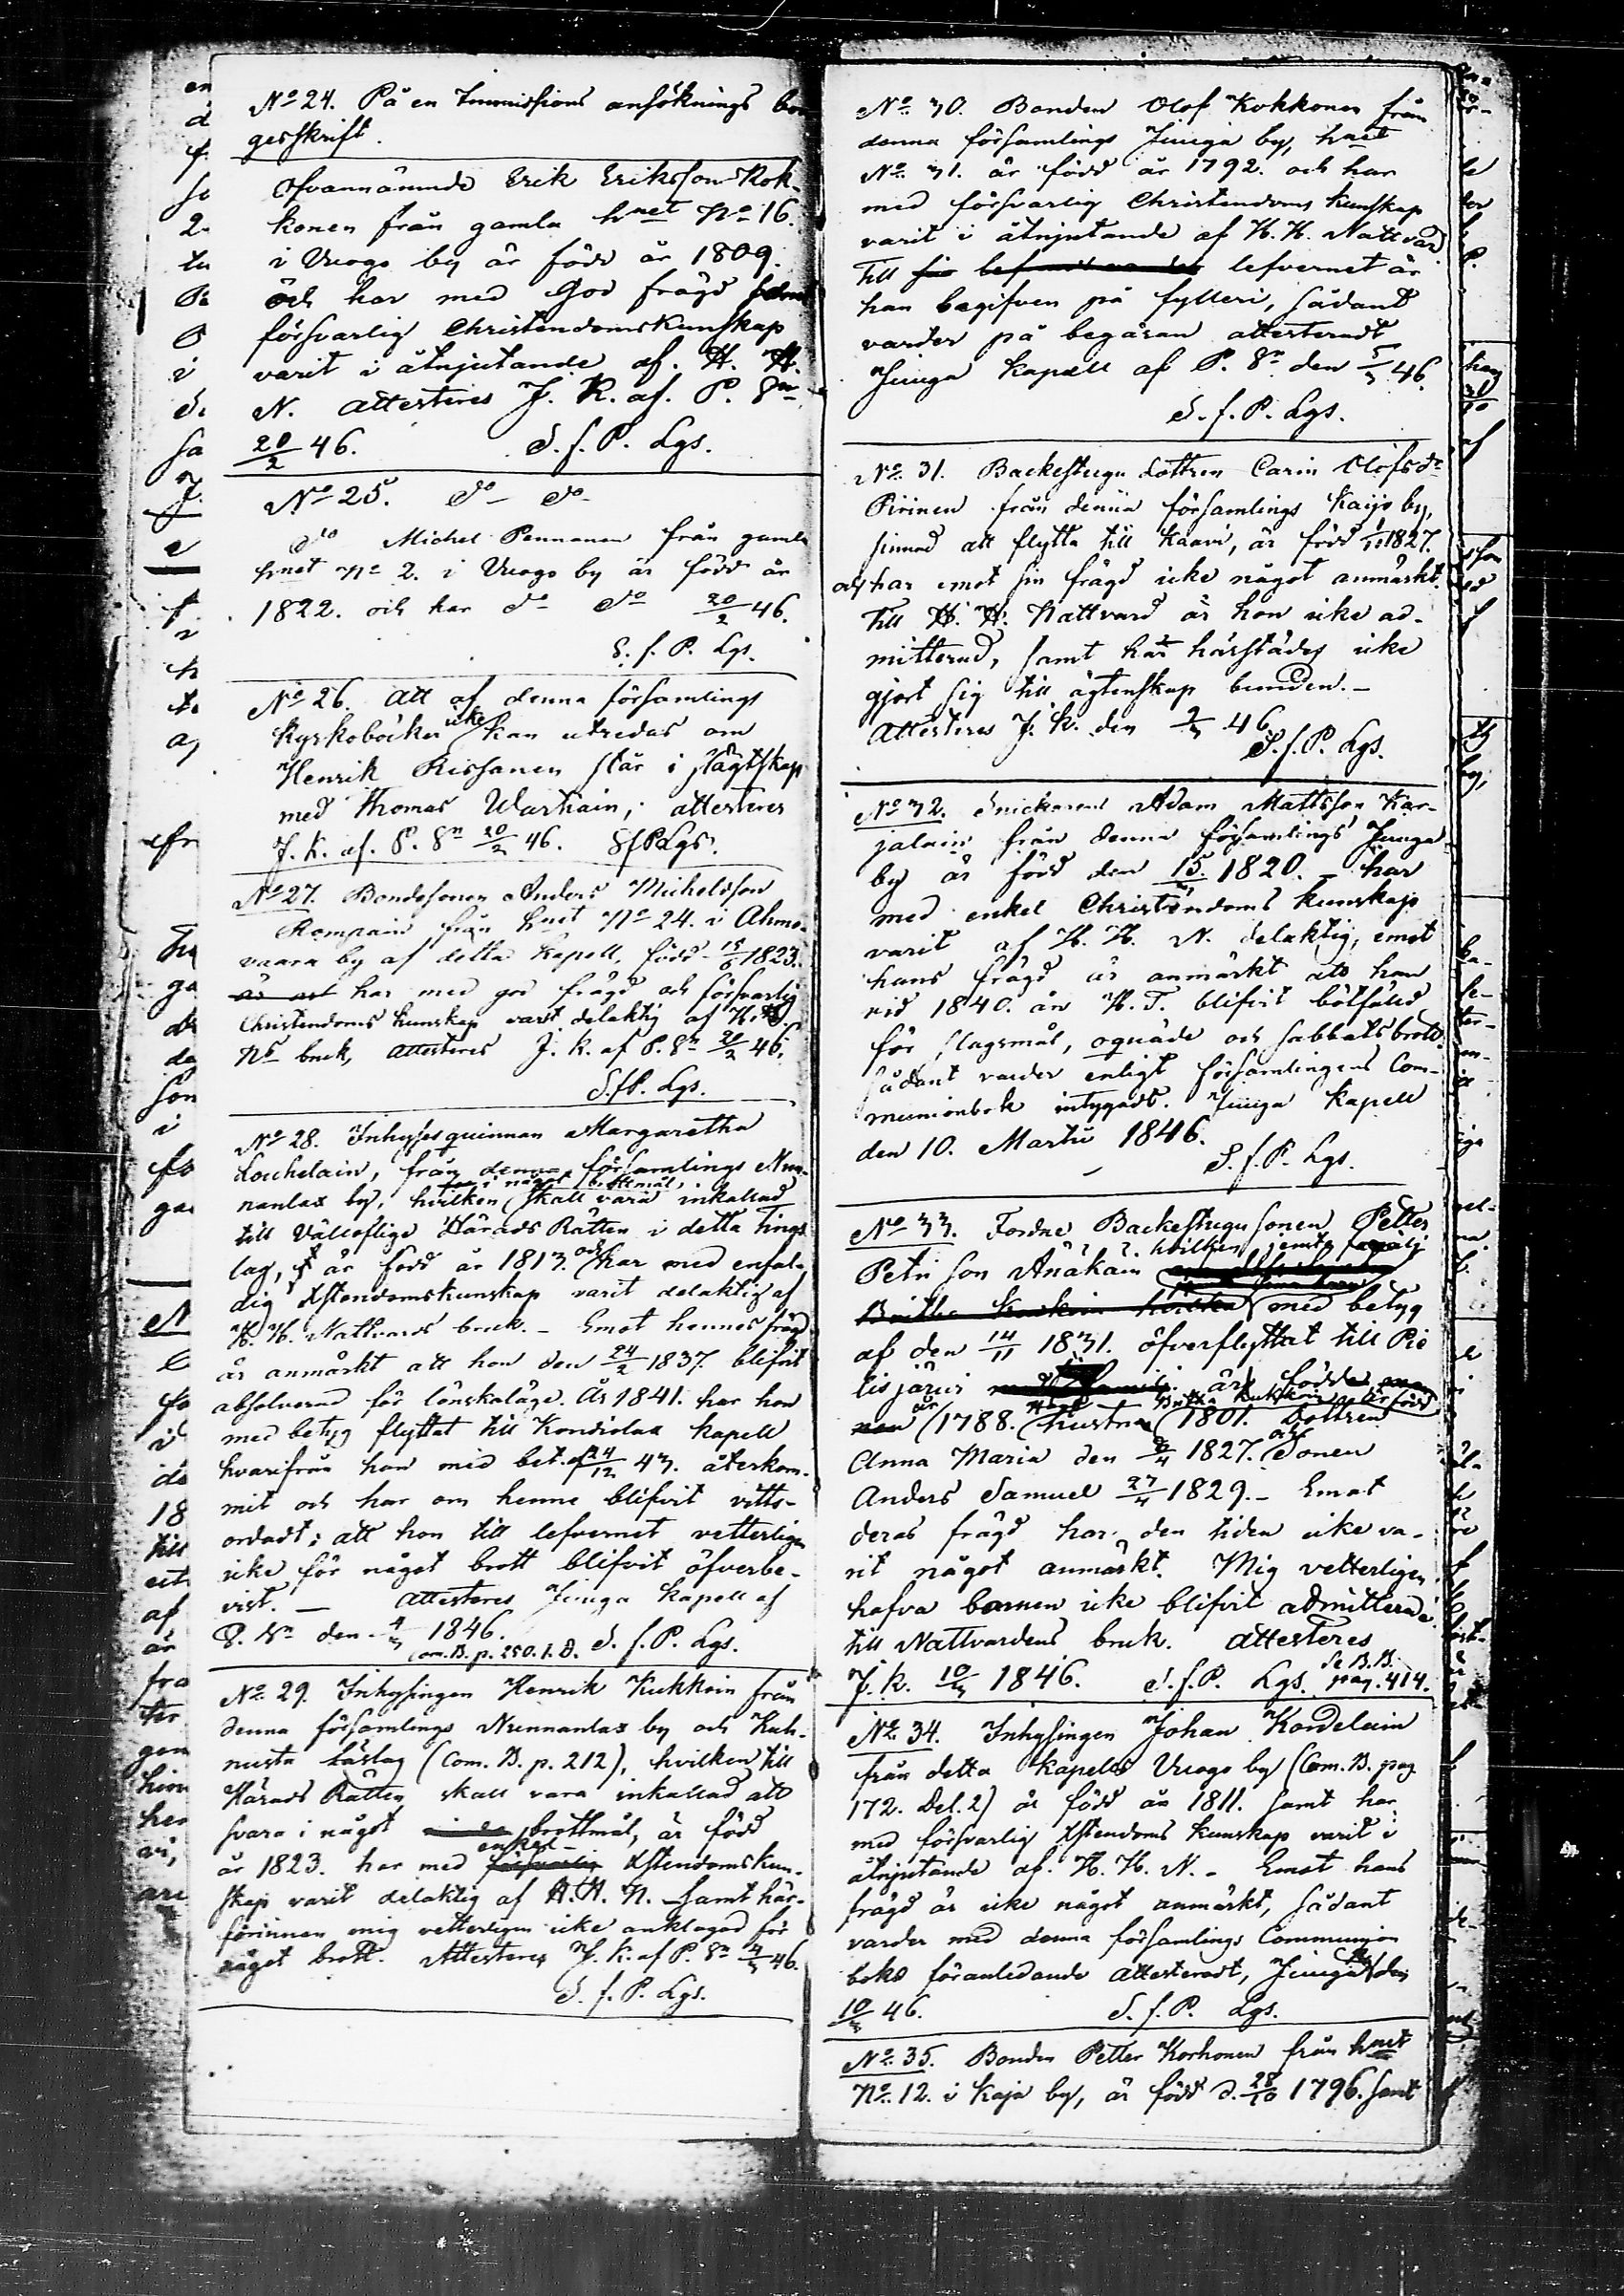 No 24. På en Immissions ansöknings bor
gesskrift.
Ofvannämnde Erik Eriksson Kok-
konen från gamla hnet No 16.
i Vuogo by är född år 1809.
och har med God frägd samt
försvarlig Christendomskunskap
varit i åtnjutande af H. H.
N. attesteras J. K. af P. Sn
20/2 46. S. f. P. Lgs.
No 25. do do
do Michel Pennanen från gamla
hnet No 2. i Vuogo by är född år
1822. och har do do 20/2 46.
S. f. P. Lgs.
No 26. Att af denna församlings
kyrkoböcker icke kan utredas om
Henrik Rissanen står i slägtskap
med Thomas Wartiain, attesteres
J. K. af. P. Sn 20/2 46. SfPLgs.
No 27. Bondesonen Anders Michelsson
Rompain från hnet No 24. i Ahmo-
vaara by af detta Kapell, född 15/6 1823.
har med god frägd och försvarlig
Christendoms kunskap varit delaktig af H. H.
Ns bruk, attesteres J. K. af P. Sn 20/2 46.
S.fP. Lgs.
No 28. Inhyses qvinnan Margaretha
Louhelain, från denna församlings Nun-
nanlax by, hvilken i något brottmål skall vara inkallad
till Vällofliga Härads Rätten i detta Tings
lag, är född år 1813. och har med enfal-
dig Xstendomskunskap varit delaktig af
H. H. Nattvards bruk. - Emot hennes frägd
är anmärkt att hon den 24/2 1837. blifvit
absolverad för lönskaläge. År 1841. har hon
med betyg flyttat till Kondiolax Kapell
hvarifrån hon mid bet. af 24/12 43. återkom-
mit och har om henne blifvit vitts-
ordadt; att hon till lefvernet vetterligen
icke för något brott blifvit öfverbe-
vist. — Attesteres Juuga Kapell af
P. Sn den 4/3 1846.
Com. B. p. 250. 1. D. S. f. P. Lgs.
No 29. Inhysingen Henrik Kukkoin från
denna församlings Nunnanlax by och Kuh-
nusta Läslag (Com. B. p. 212), hvilken till
Härads Rätten skall vara inkallad att
svara i något brottmål, är född
år 1823. har med försvarlig enkel Xstendomskun-
skap varit delaktig af H. H. N. samt här-
förinnan mig vetterligen icke anklagad för
något brott. Attesteres J. K. af P. Sn 4/3 46.
S. f. P. Lgs.
No 30. Bonden Olof Kokkonen från
denna församlings Juuga by, hnet
No 31. är född år 1792. och har
med försvarlig Christendoms kunskap
varit i åtnjutande af H. H. Nattvard
Till lefvernet är
han begifven på fylleri, sådant
varder på begäran attesteradt
Juuga Kapell af P. Sn den 5/3 46.
S. f. P. Lgs.
No 31. Backestugu dottren Carin Olofsdr
Piirinen från denna församlings Kaijo by,
sinnad att flytta till Kaavi, är född 1/11 1827.
och har emot sin frägd icke något anmärkt.
Till H. H. Nattvard är hon icke ad-
mitterad, samt har härstädes icke
gjort sig till ägtenskap bunden. -
Attesteres J. K. den 9/3 46.
S. f. P. Lgs.
No 32. Snickaren Adam Mattsson Kar-
jalain från denna församlings Juuga
by är född den 15/3 1820. - har
med enkel Christendoms kunskap
varit af H. H. N. delaktig, emot
hans frägd är anmärkt att han
vid 1840. års H. T. blifvit bötfälld
för slagsmål, oqväde och sabbatsbrott.
Sådant varder enligt församlingens Com-
munionbok intygadt. Juuga Kapell
den 10. Martii 1846.
S. f. P. Lgs.
No 33. Fordne Backestugu sonen Petter
Petri son Änäkäin hvilken jemte familj
med betyg
af den 14/11 1831. öfverflyttat till Pie
lisjärvi är födde
år 1788. hustrun Britha Kukkoin är född 1801. Dottren
Anna Maria den 9/4 1827. och Sonen
Anders Samuel 27/4 1829. - Emot
deras frägd har den tiden icke va-
rit något anmärkt. Mig vetterligen
hafva barnen icke blifvit admitterade
till Nattvardens bruk. Attesteres
J. K. 10/3 1846. S. f. P. Lgs. Se B. B. pag. 414.
No 34. Inhysingen Johan Kordelain
från detta Kapells Vuogo by (Com. B. pag
172. Del. 2) är född år 1811. samt har
med försvarlig Xstendoms kunskap varit i
åtnjutande af H. H. N. - Emot hans
frägd är icke något anmärkt, sådant
varder med denna församlings Communion
boks föranledande attesteradt, Juuga K. den
10/3 46. S. f. P. Lgs.
No 35. Bonden Petter Korhonen från hnet
No 12. i Kaja by, är född d. 28/10 1796. samt